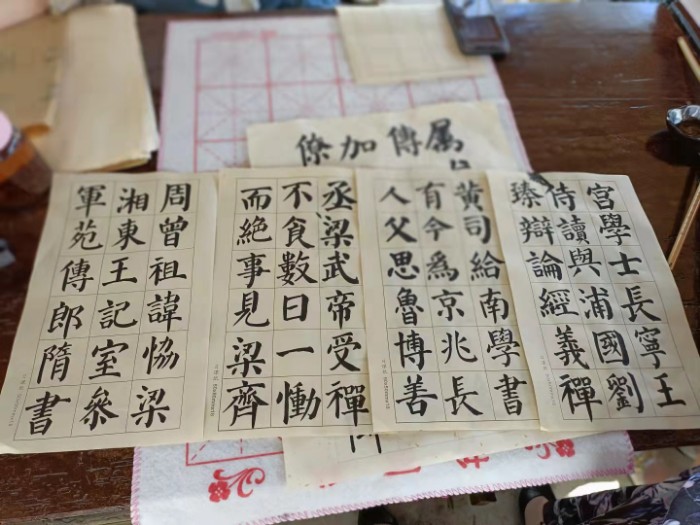 属
傳
加
僚
宮學士長寧王
侍讀與浦國劉
臻辯論經義禪
黄司給南學書
有令爲京兆長
人父思魯博善
丞梁武帝受禪
不食數日一慟
而絶事見梁齊
周曾祖諱恊梁
湘東王記室參
軍苑傳郎隋書